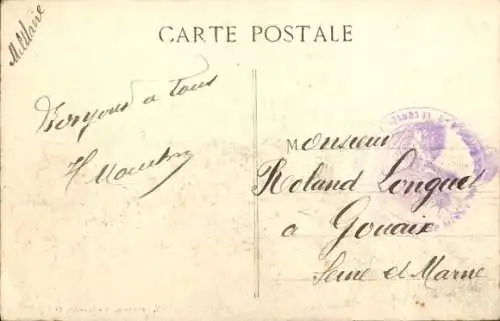 Militaire
CARTE POSTALE
Bonjour a tous
Monsieur
Roland Longuet
à Gouaix
Seine et Marne